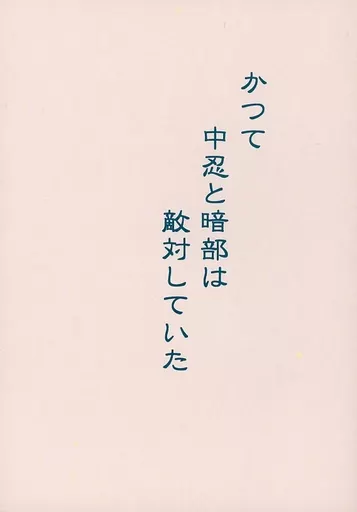 かつて
中忍と暗部は
敵対していた